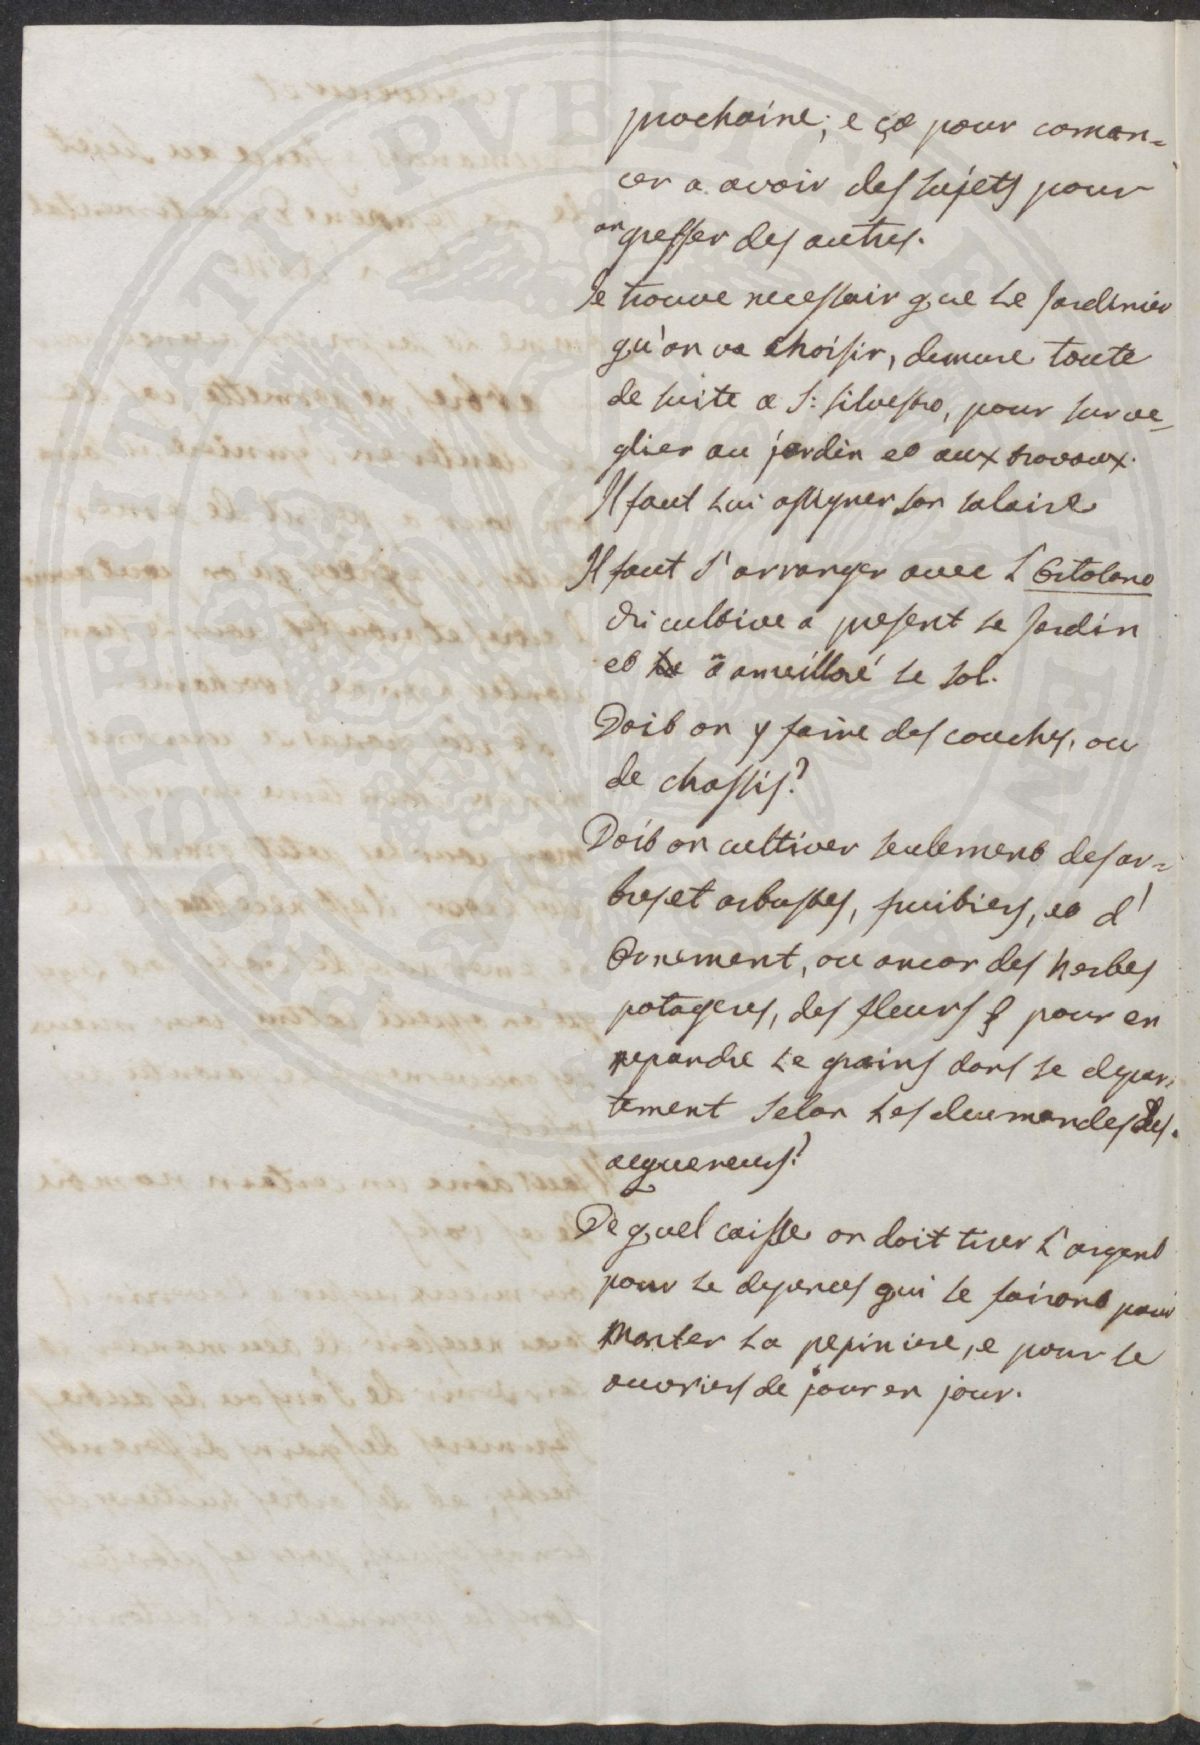 prochaine; e ça pour coman=
cer a avoir des sujets pour
en greffer des autres.
Je trouve necessair que Le Jardinier
qu'on va choisir, demure toute
de suite a S: Silvestro, pour surve=
glier au jardin et aux travaux.
Il faut Lui assigner son salaire
Il faut s'arranger avec L'Ortolano
chi cultive a present Le Jardin
et a ameilloré Le sol.
Doit on y faire des couches, ou
de chassis?
Doit on cultiver seulement des ar=
bres et arbustes, fruitiers, et d'
Ornement, ou ancor des herbes
potageres, des fleurs & pour en
repandre Le grains dans Le depar=
tement selon Les deumandes des
acquereurs?
De quel caisse on doit tirer L'argent
pour Le depences qui se fairont pour
Monter La pepiniere, e pour Le
ouvriers de jour en jour.